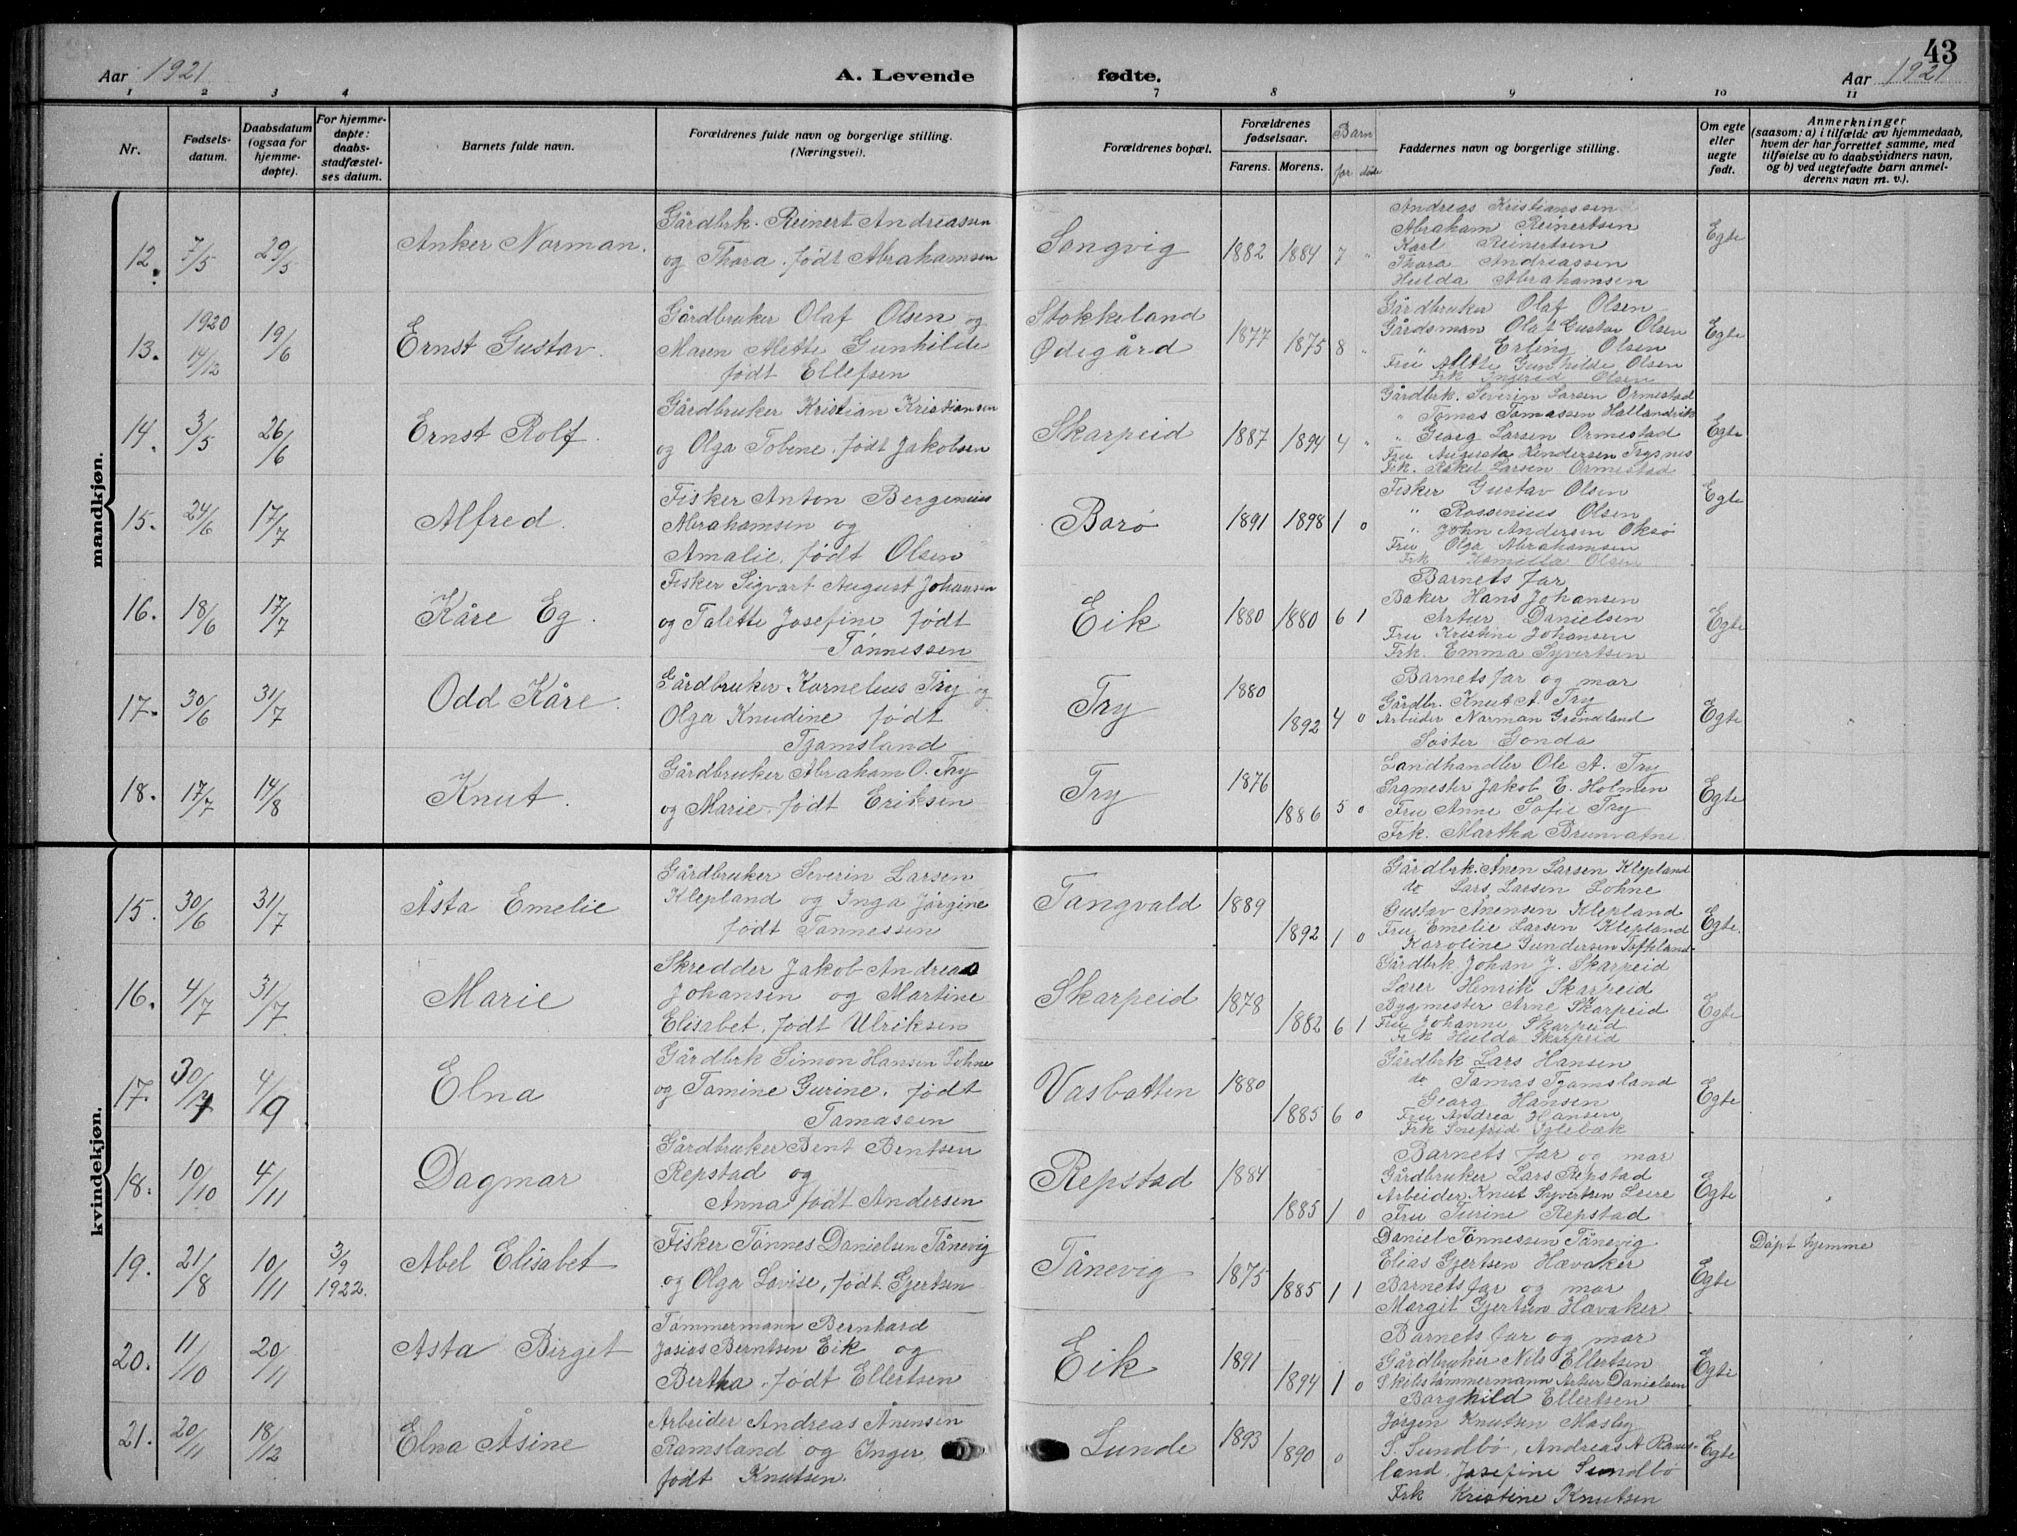 Aar 1921 A. Levende fødte. Aar 1921 43
1 2 3 4 7 8 9 10 11
Nr.
Fødsels-
datum.
Daabsdatum
(ogsaa for
hjemme-
døpte).
For hjemme-
døpte:
daabs-
stadfæstel-
ses datum.
Barnets fulde navn.
Forældrenes fulde navn og borgerlige stilling.
(Næringsvei).
Forældrenes bopæl.
Forældrenes
fødselsaar.
Farens. Morens.
Barn
før døde
Faddernes navn og borgerlige stilling.
Om egte
eller
uegte
født.
Anmerkninger
(saasom: a) i tilfælde av hjemmedaab,
hvem der har forrettet samme, med
tilføielse av to daabsvidners navn,
og b) ved uegtefødte barn anmel-
derens navn m. v.).
mandkjøn.
12. 7/5 29/5 Anker Norman.
Gårdbrk. Reinert Andreassen
og Thora, født Abrahamsen
Songvig 1882 1884 7 "
Andreas Kristianssen
Abraham Reinertsen
Karl Reinertsen
Thora Andreassen
Hulda Abrahamsen
Egte
13. 1920 14/12 19/6 Ernst Gustav.
Gårdbruker Olaf Olsen og
Maren Alette Gunhilde
født Ellefsen
Stokkeland
Ødegård
1877 1875 8 "
Gårdbruker Olaf Olsen
Gårdsman Olaf Gustav Olsen
" Erling Olsen
Fru Alette Gunhilde Olsen
Frk Ingerid Olsen
Egte
14. 3/5 26/6 Ernst Rolf.
Gårdbruker Kristian Kristiansen
og Olga Tobine, født Jakobsen
Skarpeid 1887 1894 4 "
Gårdbrk. Severin Larsen Ormestad
" Tomas Tomassen Hallandvik
" Georg Larsen Ormestad
Fru Augusta Hendersen Trysnes
Frk. Rakel Larsen Ormestad
Egte
15. 24/6 17/7 Alfred.
Fisker Anton Bergenius
Abrahamsen og
Amalie, født Olsen
Borø 1891 1898 1 0
Fisker Gustav Olsen
" Rossenius Olsen
" John Andersen Oksø
Fru Olga Abrahamsen
Frk Kamilla Olsen
Egte
16. 18/6 17/7 Kåre Eg.
Fisker Sigvart August Johansen
og Talette Josefine født
Tønnessen
Eik 1880 1880 6 1
Barnets far
Baker Hans Johansen
Artur Danielsen
Fru Kristine Johansen
Frk. Emma Syvertsen
Egte
17. 30/6 31/7 Odd Kåre.
Gårdbruker Kornelius Try og
Olga Knudine født
Tjomsland
Try 1880 1892 4 0
Barnets far og mor
Gårdbr. Knut A. Try
Arbeider Norman Grundland
Søster Gonda
Egte
18. 17/7 14/8 Knut.
Gårdbruker Abraham O. Try
og Marie, født Eriksen
Try 1876 1886 5 0
Landhandler Ole A. Try
Sagmester Jakob E. Holmen
Fru Anne Sofie Try
Frk. Martha Brunvatne
Egte
kvindekjøn.
15. 30/6 31/7 Åsta Emelie
Gårdbruker Severin Larsen
Klepland og Inga Jørgine
født Tønnessen
Tangvald 1889 1892 1 0
Gårdbrk. Ånen Larsen Klepland
do Lars Larsen Lohne
Gustav Ånensen Klepland
Fru Emelie Larsen Klepland
Karoline Gundersen Toftland
Egte.
16. 4/7 31/7 Marie
Skredder Jakob Andreas
Johansen og Martine
Elisabet, født Ulriksen
Skarpeid 1878 1882 6 1
Gårdbrk Johan J. Skarpeid
Lærer Henrik Skarpeid
Bygmester Arne Skarpeid
Fru Johanne Skarpeid
Frk Hulda Skarpeid
Egte
17. 30/7 4/9 Elna
Gårdbrk Simon Hansen Lohne
og Tomine Gurine, født
Tomassen
Vasbotten 1880 1885 6 0
Gårdbrk Lars Hansen
do Tomas Tjomsland
Georg Hansen
Fru Andrea Hansen
Frk Snefrid Iglebæk
Egte
18. 10/10 4/11 Dagmar
Gårdbruker Bent Bentsen
Repstad og
Anna født Andersen
Repstad 1884 1885 1 0
Barnets far og mor
Gårdbruker Lars Repstad
Arbeider Knut Syvertsen Leire
Fru Turine Repstad
Egte
19. 21/8 10/11 3/9 1922. Abel Elisabet
Fisker Tønnes Danielsen Tånevig
og Olga Lovise, født Gjertsen
Tånevig 1875 1885 1 1
Daniel Tønnessen Tånevig
Elias Gjertsen Hævaker
Barnets far og mor
Margit Gjertsen Hævaker
Egte
Døpt hjemme
20. 11/10 20/11 Asta Birget
Tømmermann Bernhard
Josias Berntsen Eik og
Bertha, født Ellertsen
Eik 1891 1894 1 0
Barnets far og mor
Gårdbruker Nils Ellertsen
Skibstømmermann Artur Danielsen
Borghild Ellertsen
Egte
21. 20/11 18/12 Elna Åsine
Arbeider Andreas Ånensen
Ramsland og Inger,
født Knutsen.
Lunde 1893 1890 0
Jørgen Knutsen Mosby
S. Sundbø, Andreas A Rams-
land. Josefine Sundbø
Frk Kristine Knutsen
Egte